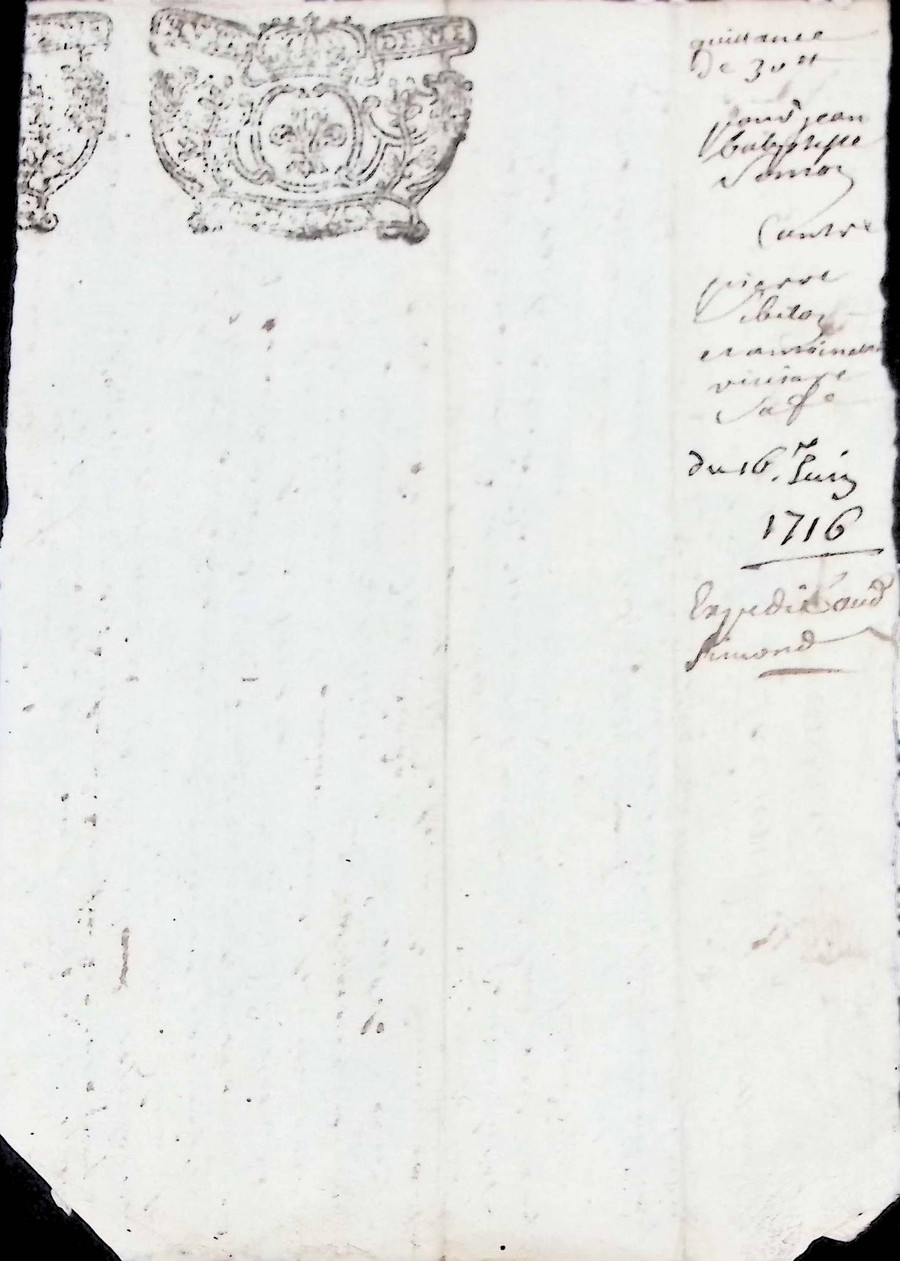 DENIE
quittance
de 30ᵗᵗ
pour jean
baptiste
Simon
Contre
pierre
et antoine
sa fᵉ
du 16. Juin
1716
Expedié aud
Simond